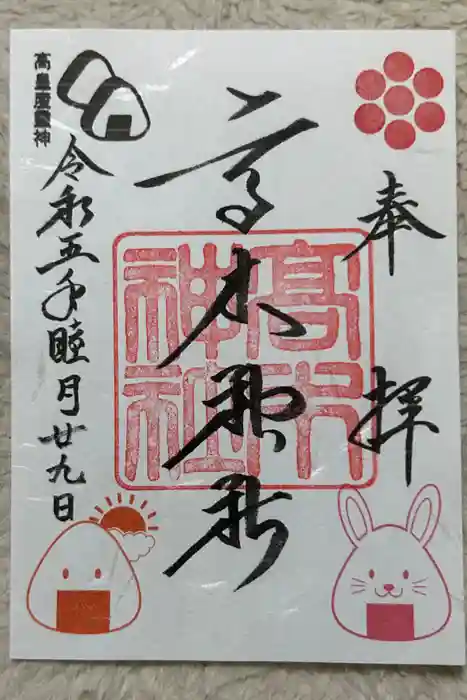 奉拝
高木神社
高木神社
高皇産霊神
令和五年睦月廿九日